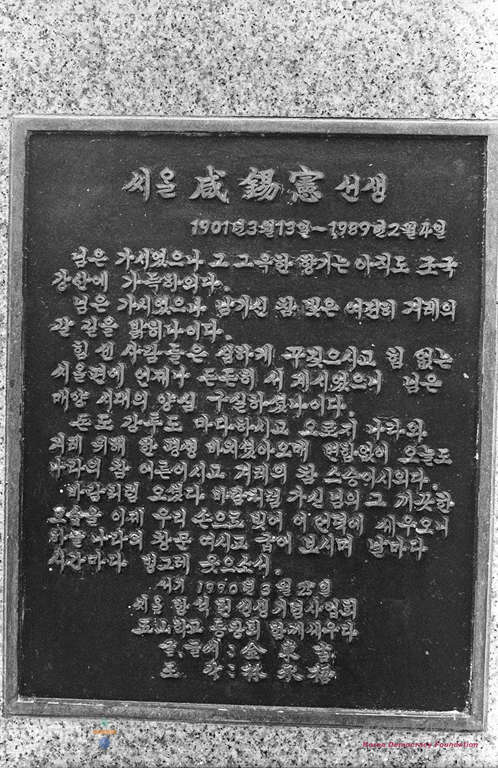 씨ᄋᆞᆯ 咸錫憲 선생
1901년3월13일~1989년2월4일
님은 가시었으나 그 그윽한 향기는 아직도 조국
강산에 가득하외다.
님은 가시었으나 남기신 참 빛은 여전히 겨레의
갈 길을 밝히나이다.
힘 센 사람들은 심하게 꾸짖으시고 힘 없는
씨ᄋᆞᆯ편에 언제나 든든히 서 계시었으니 님은
매양 시대의 양심 구실하셨나이다.
돈도 감투도 마다하시고 오로지 나라와
겨레 위해 한평생 바치셨아오매 변함없이 오늘도
나라의 참 어른이시고 겨레의 참 스승이시외다.
바람처럼 오셨다 바람처럼 가신 님의 그 깨끗한
모습을 이제 우리 손으로 빚어 이 언덕에 세우오니
하늘나라의 창문 여시고 굽어 보시며 날마다
시간마다 벙그레 웃으소서.
서기 1990년 월 일
씨ᄋᆞᆯ 함석헌선생기념사업회
五山학교 총동창회 함께세우다
글, 글씨 : 金東
조각 : 林
Korea Democracy Foundation